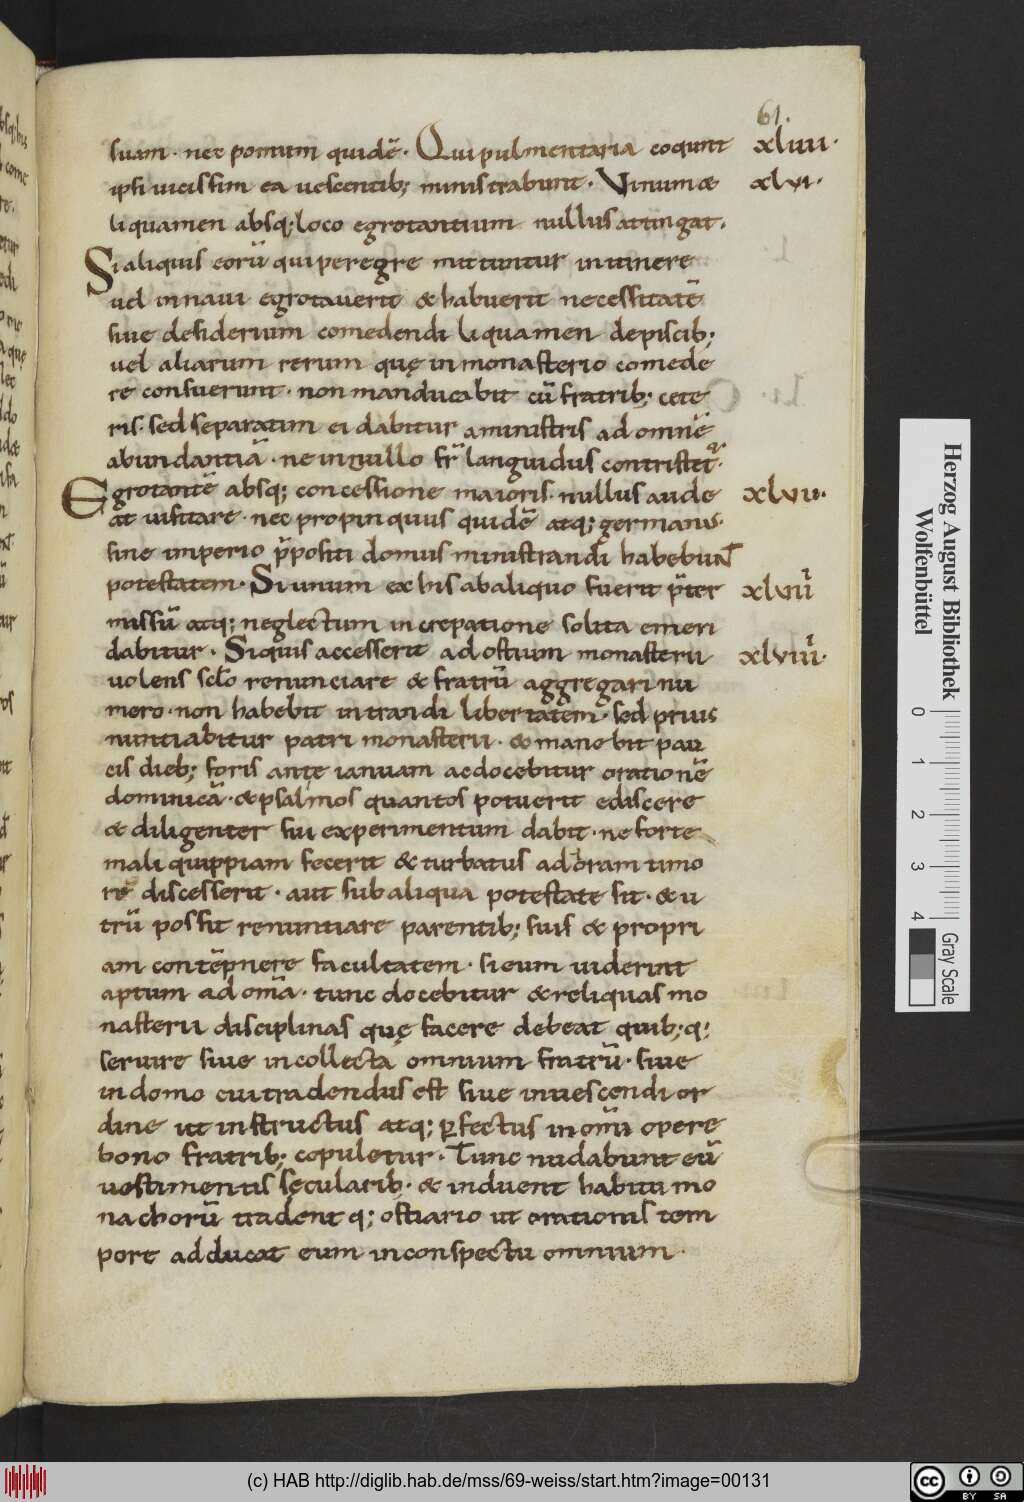 61.
suam · nec pomum quidē · Qui pulmentaria coqunt xliiii ·
ipsi uicissim ea uescentib; ministrabunt · Vinum & xlvi ·
liquamen absq; loco egrotantium nullus attingat .
Si aliquis eorū qui peregre mittuntur in itinere
uel in naui egrotauerit & habuerit necessitatē
siue desiderium comedendi liquamen de piscib;
uel aliarum rerum quę in monasterio comede
re consuerunt · non manducabit cū fratrib; cete
ris · sed separatim ei dabitur a ministris ad omnē
abundantiā · ne in nullo fr̄ languidus contristet᷒ ·
Egrotantē absq; concessione maioris · nullus aude xlvii ·
at uisitare · nec propinquus quidē atq; germanis ·
sine imperio p̄positi domus ministrandi habebunt
potestatem · Si unum ex his ab aliquo fuerit p̄ter xlviii
missū atq; neglectum increpatione solita emen
dabitur · Si quis accesserit ad ostium monasterii xlviiii ·
uolens sclo renunciare & fratrū aggregari nu
mero · non habebit intrandi libertatem · sed prius
nuntiabitur patri monasterii · & manebit pau
cis dieb; foris ante ianuam ac docebitur orationē
dominicā · & psalmos quantos potuerit ediscere
& diligenter sui experimentum dabit · ne forte
mali quippiam fecerit & turbatus ad horam timo
re discesserit · aut sub aliqua potestate sit · & u
trū possit renuntiare parentib; suis & propri
am contēpnere facultatem · si eum uiderint
aptum ad om̄a · tunc docebitur & reliquas mo
nasterii disciplinas quę facere debeat quib; q;
seruire siue in collecta omnium fratrū · siue
in domo cui tradendus est siue in uescendi or
dine ut instructus atq; ꝑfectus in om̄i opere
bono fratrib; copuletur · Tunc nudabunt eū
uestimentis sęcularib · & induent habitu mo
nachorū tradent q; ostiario ut orationis tem
pore adducat eum in conspectu omnium ·
Herzog August Bibliothek
Wolfenbüttel
0 1 2 3 4
Gray Scale
(c) HAB http://diglib.hab.de/mss/69-weiss/start.htm?image=00131
cc BY SA